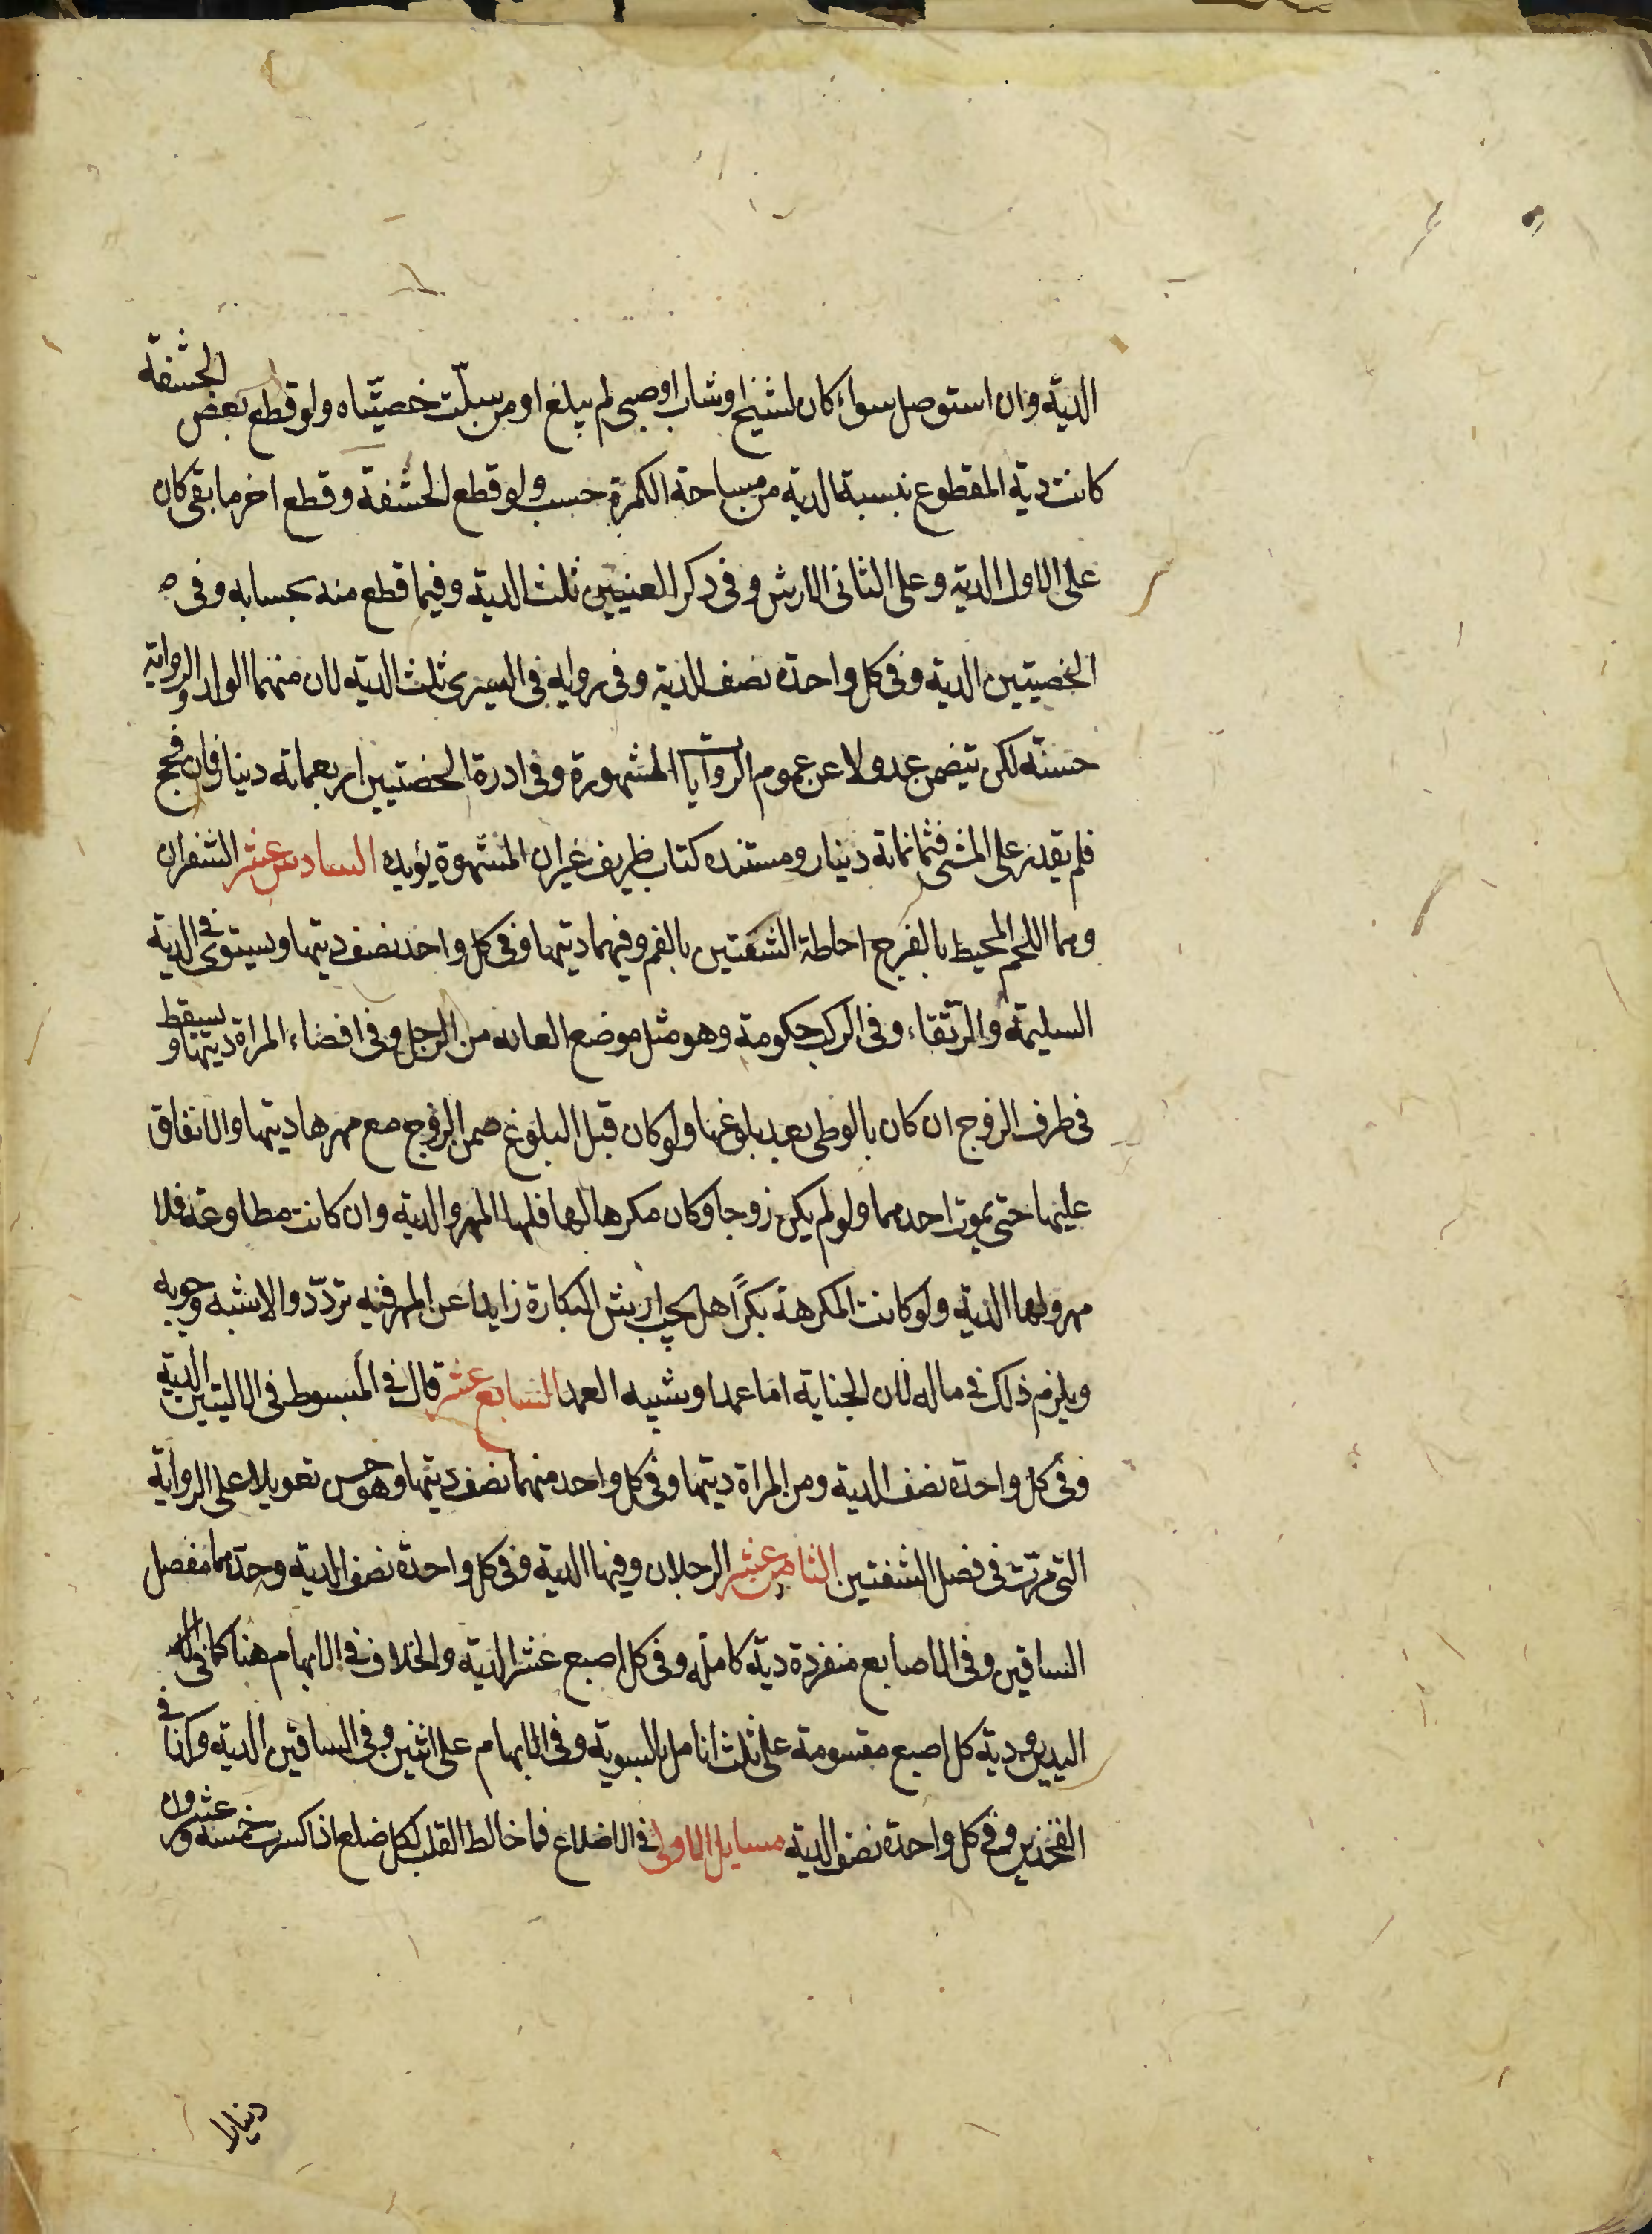 الدية وان استوصل سواء كان لشيخ او شاب او صبى لم يبلغ او من سبلّت خصيتاه ولو قطع بعض الحشفة
كانت دية المقطوع بنسبة الدية من مساحة الكمرة حسب ولو قطع الحشفة وقطع اخر ما بقى كان
على الاول الدية وعلى الثانى الارش وفى ذكر العنيين ثلث الدية وفيما قطع منه بحسابه وفى
الخصيتين الدية وفى كل واحدة نصف الدية وفى رواية فى اليسرى ثلث الدية لان منهما الولد والرواية
حسنة لكن تتضمن عدولا عن عموم الروايات المشهورة وفى ادرة الخصتيين اربعماته دينار فان فحج
فلم يقدر على المشى فثمانماته دينار ومستنده كتاب ظريف غير ان المشهوة يؤيده السادس عشر الشفران
وهما اللحم المحيط بالفرج احاطة الشفتين بالفم وفيهما ديتها وفى كل واحد نصف ديتها ويستوى فى الدية
السليمة والرتقاء وفى الركب حكومة وهو مثل موضع العانه من الرجل وفى افضاء المراة ديتها ويسقط
فى طرف الزوج ان كان بالوطى بعد بلوغها ولو كان قبل البلوغ ضمن الزوج مع مهرها ديتها والانفاق
عليها حتى يموت احدهما ولو لم يكن زوجا وكان مكرها لها فلها المهر والدية وان كانت مطاوعة فلا
مهر ولها الدية ولو كانت المكرهة بكرًا هل يجب ارش البكارة زايدا عن المهر فيه تردّد والاشبه وجوبه
ويلزم ذلك فى ماله لان الجناية اما عمدا وشبيه العمد السابع عشر قال فى المبسوط فى الاليتين الدية
وفى كل واحدة نصف الدية ومن المراة ديتها وفى كل واحد منهما نصف ديتها وهو حسن تعويلا على الرواية
التى مرت فى فصل الشفتين الثامن عشر الرجلان وفيها الدية وفى كل واحدة نصف الدية وحدهما مفصل
الساقين وفى الاصابع منفردة دية كاملة وفى كل اصبع عشر الدية والخلاف فى الابهام هنا كما فى
اليدين ودية كل اصبع مقسومة على ثلث انامل بالسوية وفى الابهام على اثنين وفى الساقين الدية وكذا فى
الفخذين وفى كل واحدة نصف الدية مسايل الاولى فى الاضلاع فما خالط القلب لكل ضلع اذا كسرت خمسة وعشرون
دينارا